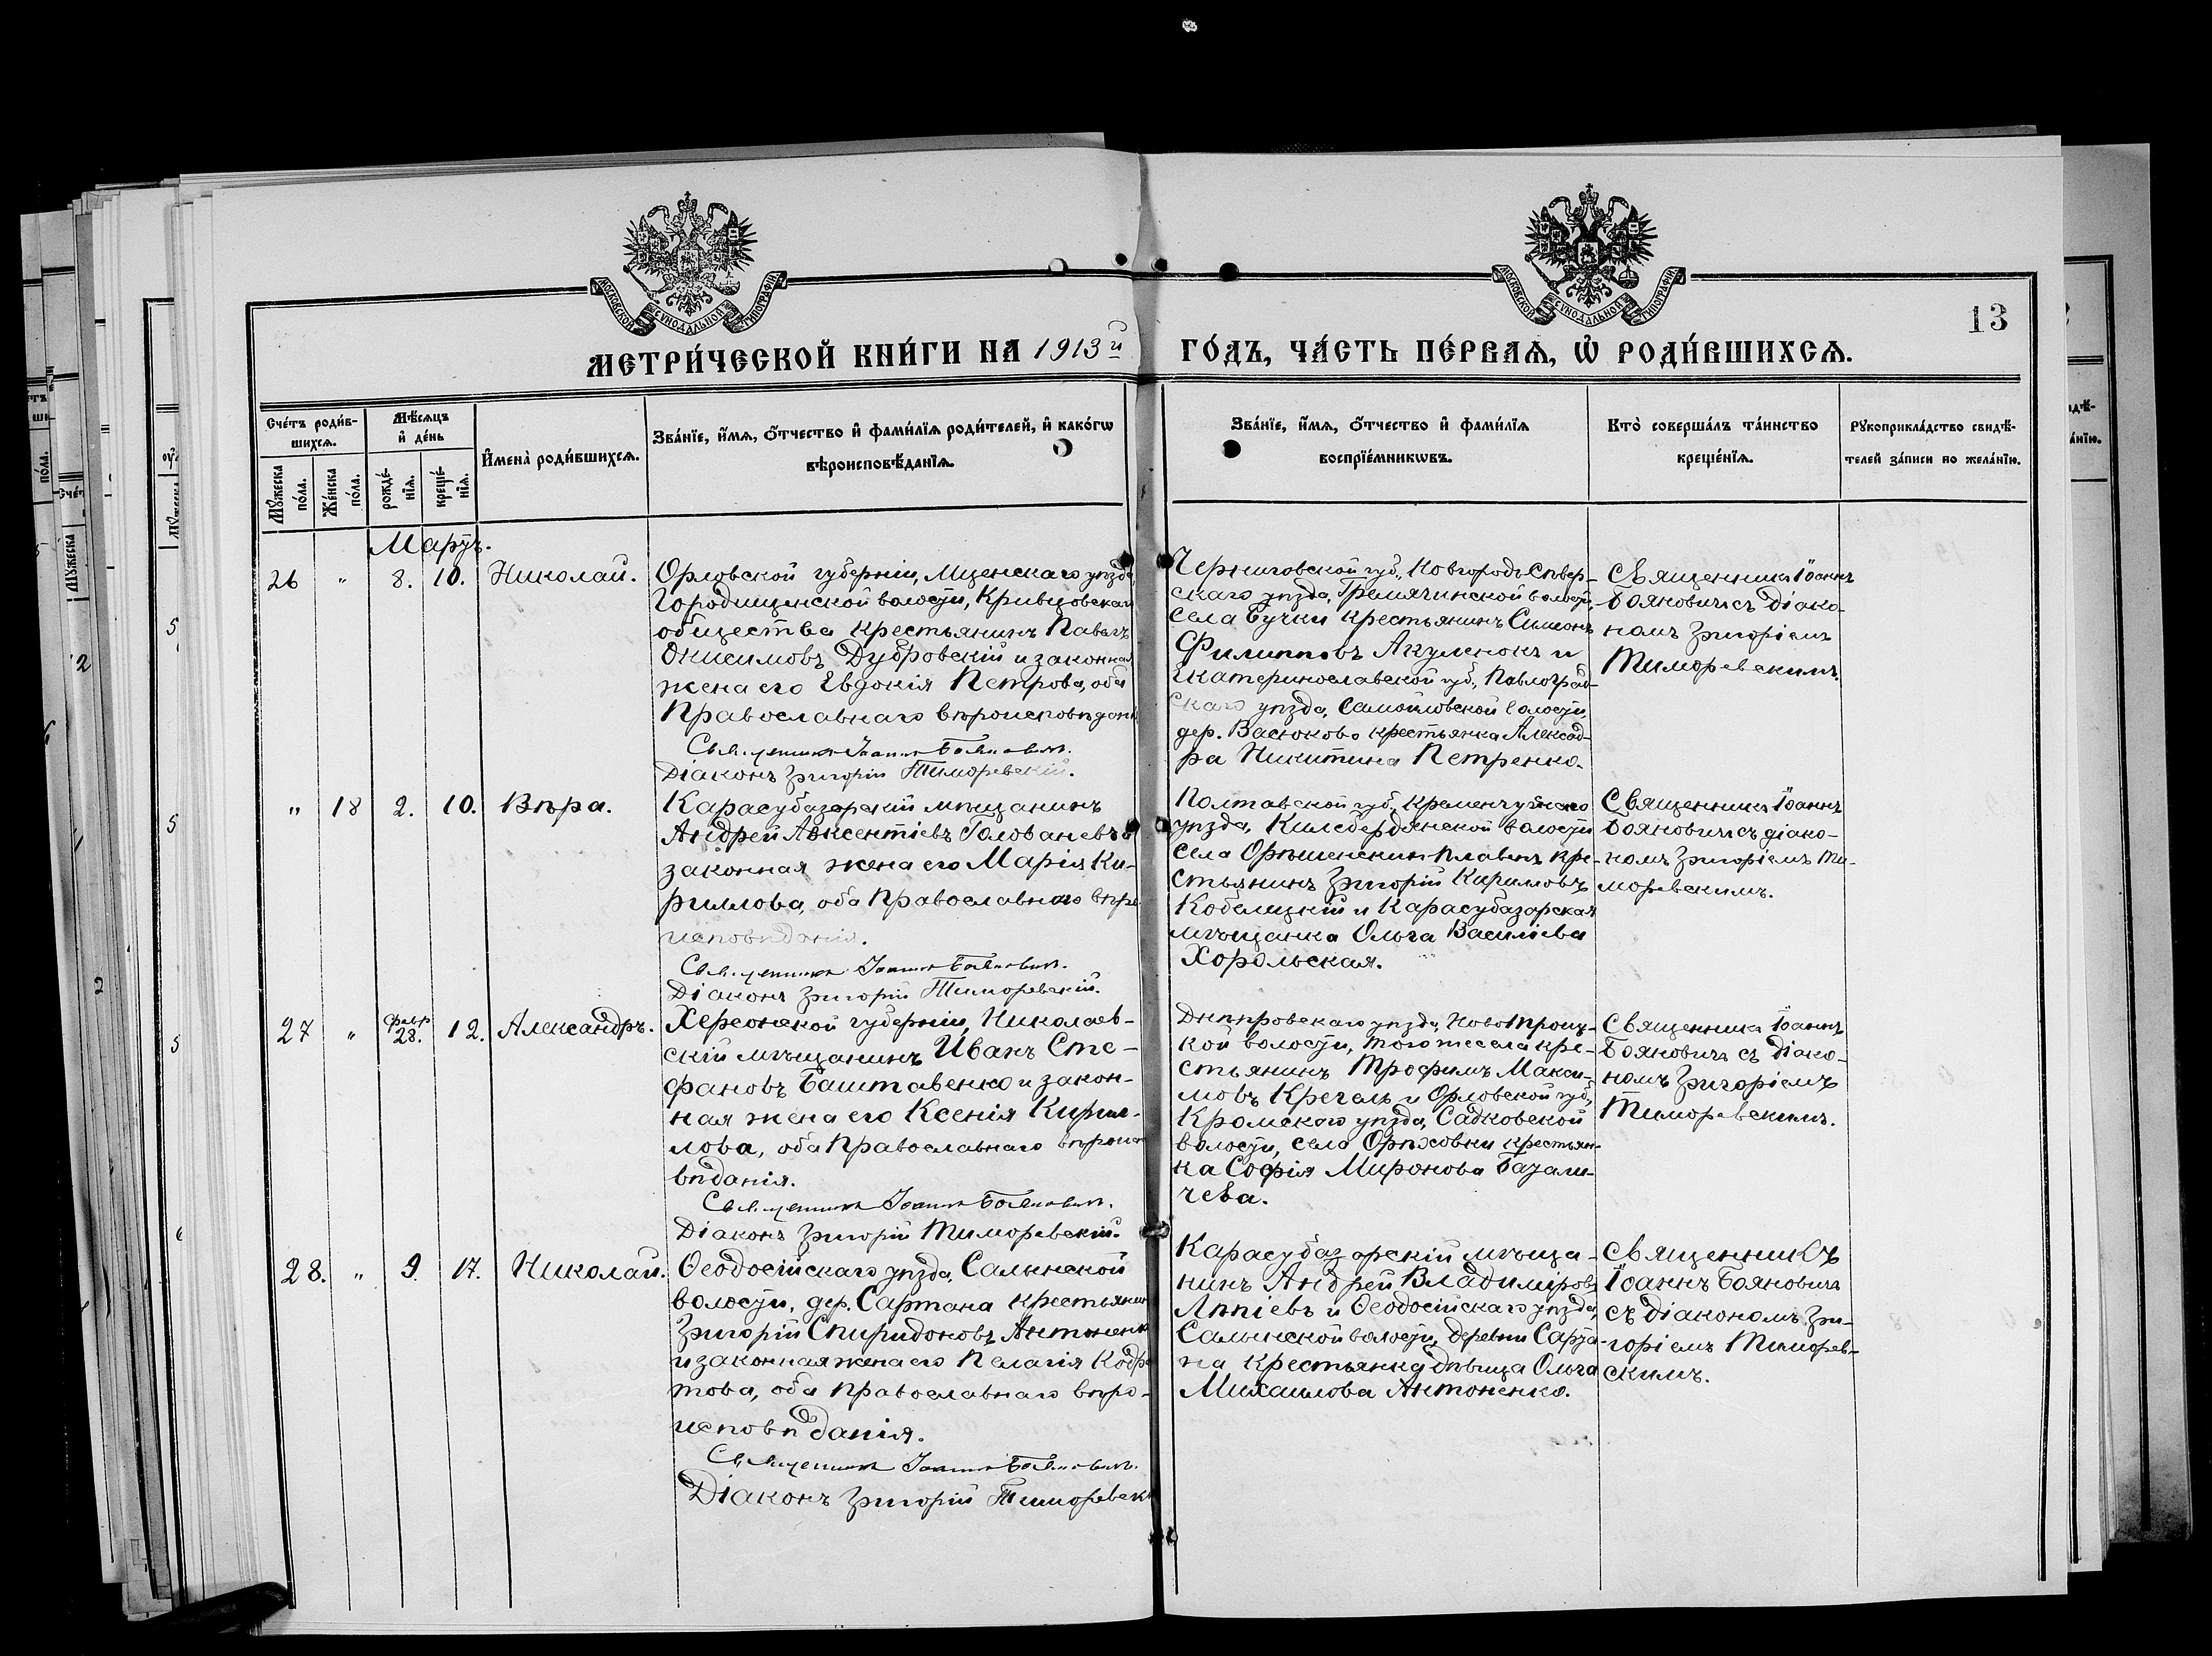 МОСКОВСКОЙ СѴНОДАЛЬНОЙ ТИПОГРАФІИ
МОСКОВСКОЙ СѴНОДАЛЬНОЙ ТИПОГРАФІИ
13
МЕТРИ́ЧЕСКОЙ КНИ́ГИ НА 1913й
ГО́ДЪ, ЧА́СТЬ ПЕ́РВАѦ, Ѡ҆ РОДИ́ВШИХСѦ.
Сче́тъ роди́в-
шихсѧ.
Мꙋ́жеска по́ла.
Же́нска по́ла.
Мѣ́сѧцъ
и҆ де́нь
рожде́-
нїѧ.
креще́-
нїѧ.
И҆мена̀ роди́вшихсѧ.
Зва́нїе, и҆́мѧ, ѻ҆́тчество и҆ фами́лїѧ роди́телей, и҆ како́гѡ
вѣроисповѣ́данїѧ.
Зва́нїе, и҆́мѧ, ѻ҆́тчество и҆ фами́лїѧ
воспрїе́мникѡвъ.
Кто̀ соверша́лъ та́инство
креще́нїѧ.
Рꙋкоприкла́дство свидѣ́-
телей за́писи по жела́нїю.
Мартъ.
26 " 8. 10. Николай.
Орловской губерніи, Мценскаго уѣзда,
Городищенской волости, Кривцовскаго
общества крестьянинъ Павелъ
Онисимовъ Дубровскій и законная
жена его Евдокія Петрова, оба
Православнаго вѣроисповѣданія
Священникъ Іоаннъ Бояновичъ.
Діаконъ Григорій Тиморевскій.
Черниговской губ., Новгородъ-Сѣвер-
скаго уѣзда, Гремячинской волости,
села Бучки крестьянинъ Симеонъ
Филипповъ Акуленокъ и
Екатеринославской губ., Павлоград-
скаго уѣзда, Самойловской волости,
дер. Васюково крестьянка Алексад-
ра Никитина Петренко.
Священникъ Іоаннъ
Бояновичъ съ діако-
номъ Григоріемъ
Тиморевскимъ.
" 18 2. 10. Вѣра.
Карасубазарскій мѣщанинъ
Андрей Авксентіевъ Голованевъ и
законная жена его Марія Ки-
риллова, оба Православнаго вѣро
исповѣданія.
Священникъ Іоаннъ Бояновичъ.
Діаконъ Григорій Тиморевскій.
Полтавской губ., Кременчугскаго
уѣзда, Килебердянской волости
села плавень кре-
стьянинъ Григорій Кирилловъ
Кобелицкій и Карасубазарская
мѣщанка Ольга Василіева
Хорольская.
Священникъ Іоаннъ
Бояновичъ съ діако-
номъ Григоріемъ Ти-
моревскимъ.
27 " февр 28. 12. Александръ.
Херсонской губерніи, Николаев-
скій мѣщанинъ Иванъ Сте-
фановъ Баштавенко и закон-
ная жена его Ксенія Кирил-
лова, оба Православнаго вѣроиспо
вѣданія.
Священникъ Іоаннъ Бояновичъ.
Діаконъ Григорій Тиморевскій.
Днѣпровскаго уѣзда, НовоТроиц-
кой волости, того же села кре-
стьянинъ Трофимъ Макси-
мовъ Кречель и Орловской губ.,
Кромскаго уѣзда, Садковской
волости, села Орѣховки крестьян-
ка Софія Миронова Базали-
чева.
Священникъ Іоаннъ
Бояновичъ съ діако-
номъ Григоріемъ
Тиморевскимъ.
28. " 9. 17. Николай.
Ѳеодосійскаго уѣзда, Салынской
волости, дер. Сартана крестьянин
Григорій Спиридоновъ Антоненко
и законная жена его Пелагія Кодра
това, оба Православнаго вѣро-
исповѣданія.
Священникъ Іоаннъ Бояновичъ.
Діаконъ Григорій Тиморевскі
Карасубазарскій мѣща-
нинъ Андрей Владиміровъ
Аппіевъ и Ѳеодосійскаго уѣзда,
Салынской волости, деревни Сарта-
на крестьянка дѣвица Ольга
Михаилова Антоненко.
Священникъ
Іоаннъ Бояновичъ
съ діакономъ Гри-
горіемъ Тиморев-
скимъ.